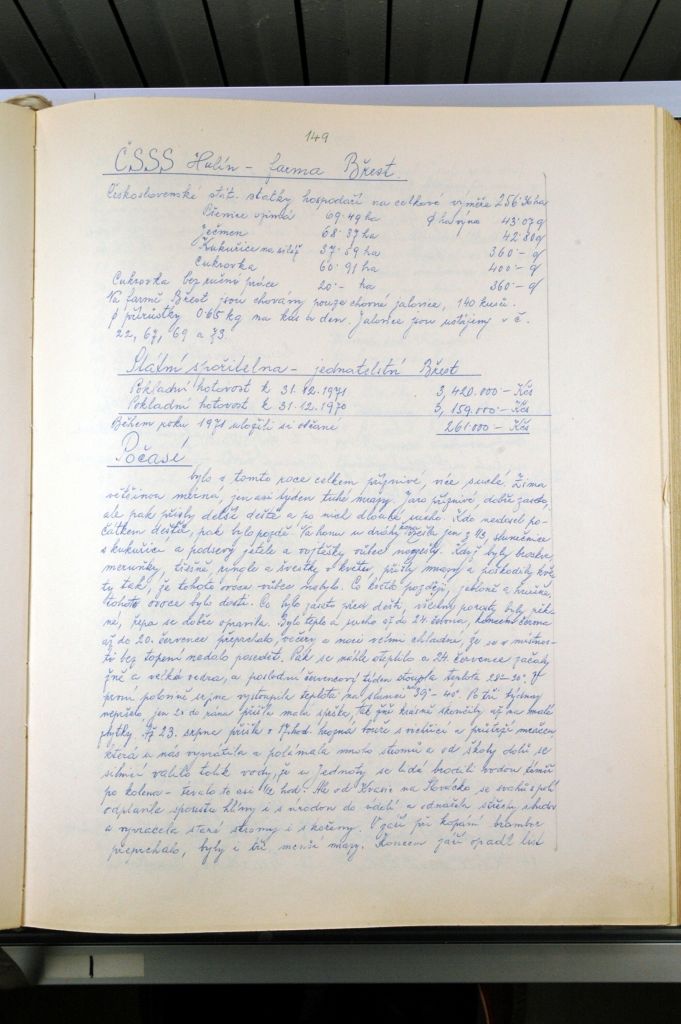 149
ČSSS Hulín - farma Břest.
Československé stát. statky hospodaří na celkové výměře 256.36 ha
Pšenice ozimá 69.49 ha ϕ ha výnos 43.07 q
Ječmen 68.37 ha 42.80 q
Kukuřice na siláž 37.59 ha 360.- q
Cukrovka 60.91 ha 400.- q
Cukrovka bez ruční práce 20.- ha 360.- q
Na farmě Břest jsou chovány pouze chovné jalovice, 140 kusů.
ϕ přírůstky 0.65 kg na kus a den. Jalovice jsou ustájeny v č.
22, 67, 69 a 73.
Státní spořitelna - jednatelství Břest
Pokladní hotovost k 31.12.1971 3,420.000.- Kčs
Pokladní hotovost k 31.12.1970 3,159.000.- Kčs
Během roku 1971 uložili si občané 261.000.- Kčs
Počasí
bylo v tomto roce celkem příznivé, více suché. Zima
většinou mírná, jen asi týden tuhé mrazy. Jaro příznivé, dobře zaseto,
ale pak přišly delší deště a po nich dlouhé sucho. Kdo nedosel po-
čátkem deště, pak bylo pozdě. Na honu u dráhy vzešla jen z 1/3, slunečnice
s kukuřicí a podsevy jetele a vojtěšky vůbec nevzešly. Když byly broskve,
meruňky, třešně, ringle a švestky v květu, přišly mrazy a poškodily kvě-
ty tak, že tohoto ovoce vůbec nebylo. Co kvetlo později, jabloně a hrušně,
tohoto ovoce bylo dosti. Co bylo zaseto před dešti, všechny porosty byly pěk-
né, řepa se dobře opravila. Bylo teplo a sucho až do 24. června, koncem června
až do 20. července přepršelo, večery a noci velmi chladné, že se v místnos-
ti bez topení nedalo posedět. Pak se náhle oteplilo a 24. července začaly
žně a velká vedra, a poslední červencový týden stoupla teplota 28°-30°. V
první polovině srpna vystoupila teplota na slunci 39°- 40°. Po tři týdny
nepršelo, jen 2x do rána přišla malá sprška, tak žně krásně skončily až na malé
zbytky. Až 23. srpna přišla v 17. hod. hrozná bouře s vichřicí a průtrží mračen,
která u nás vyvrátila a polámala mnoho stromů a od školy dolů se
silnicí valilo tolik vody, že u Jednoty se lidé brodili vodou téměř
po kolena - trvalo to asi 1/2 hod. Ale od Kvasic na Slovácko se svahů spolu
odplavila spoustu hlíny i s úrodou do údolí a odnášela střechy s budov
a vyvracela staré stromy i s kořeny. V září při kopání brambor
přepršelo, byly i tři menší mrazy. Koncem září opadl list